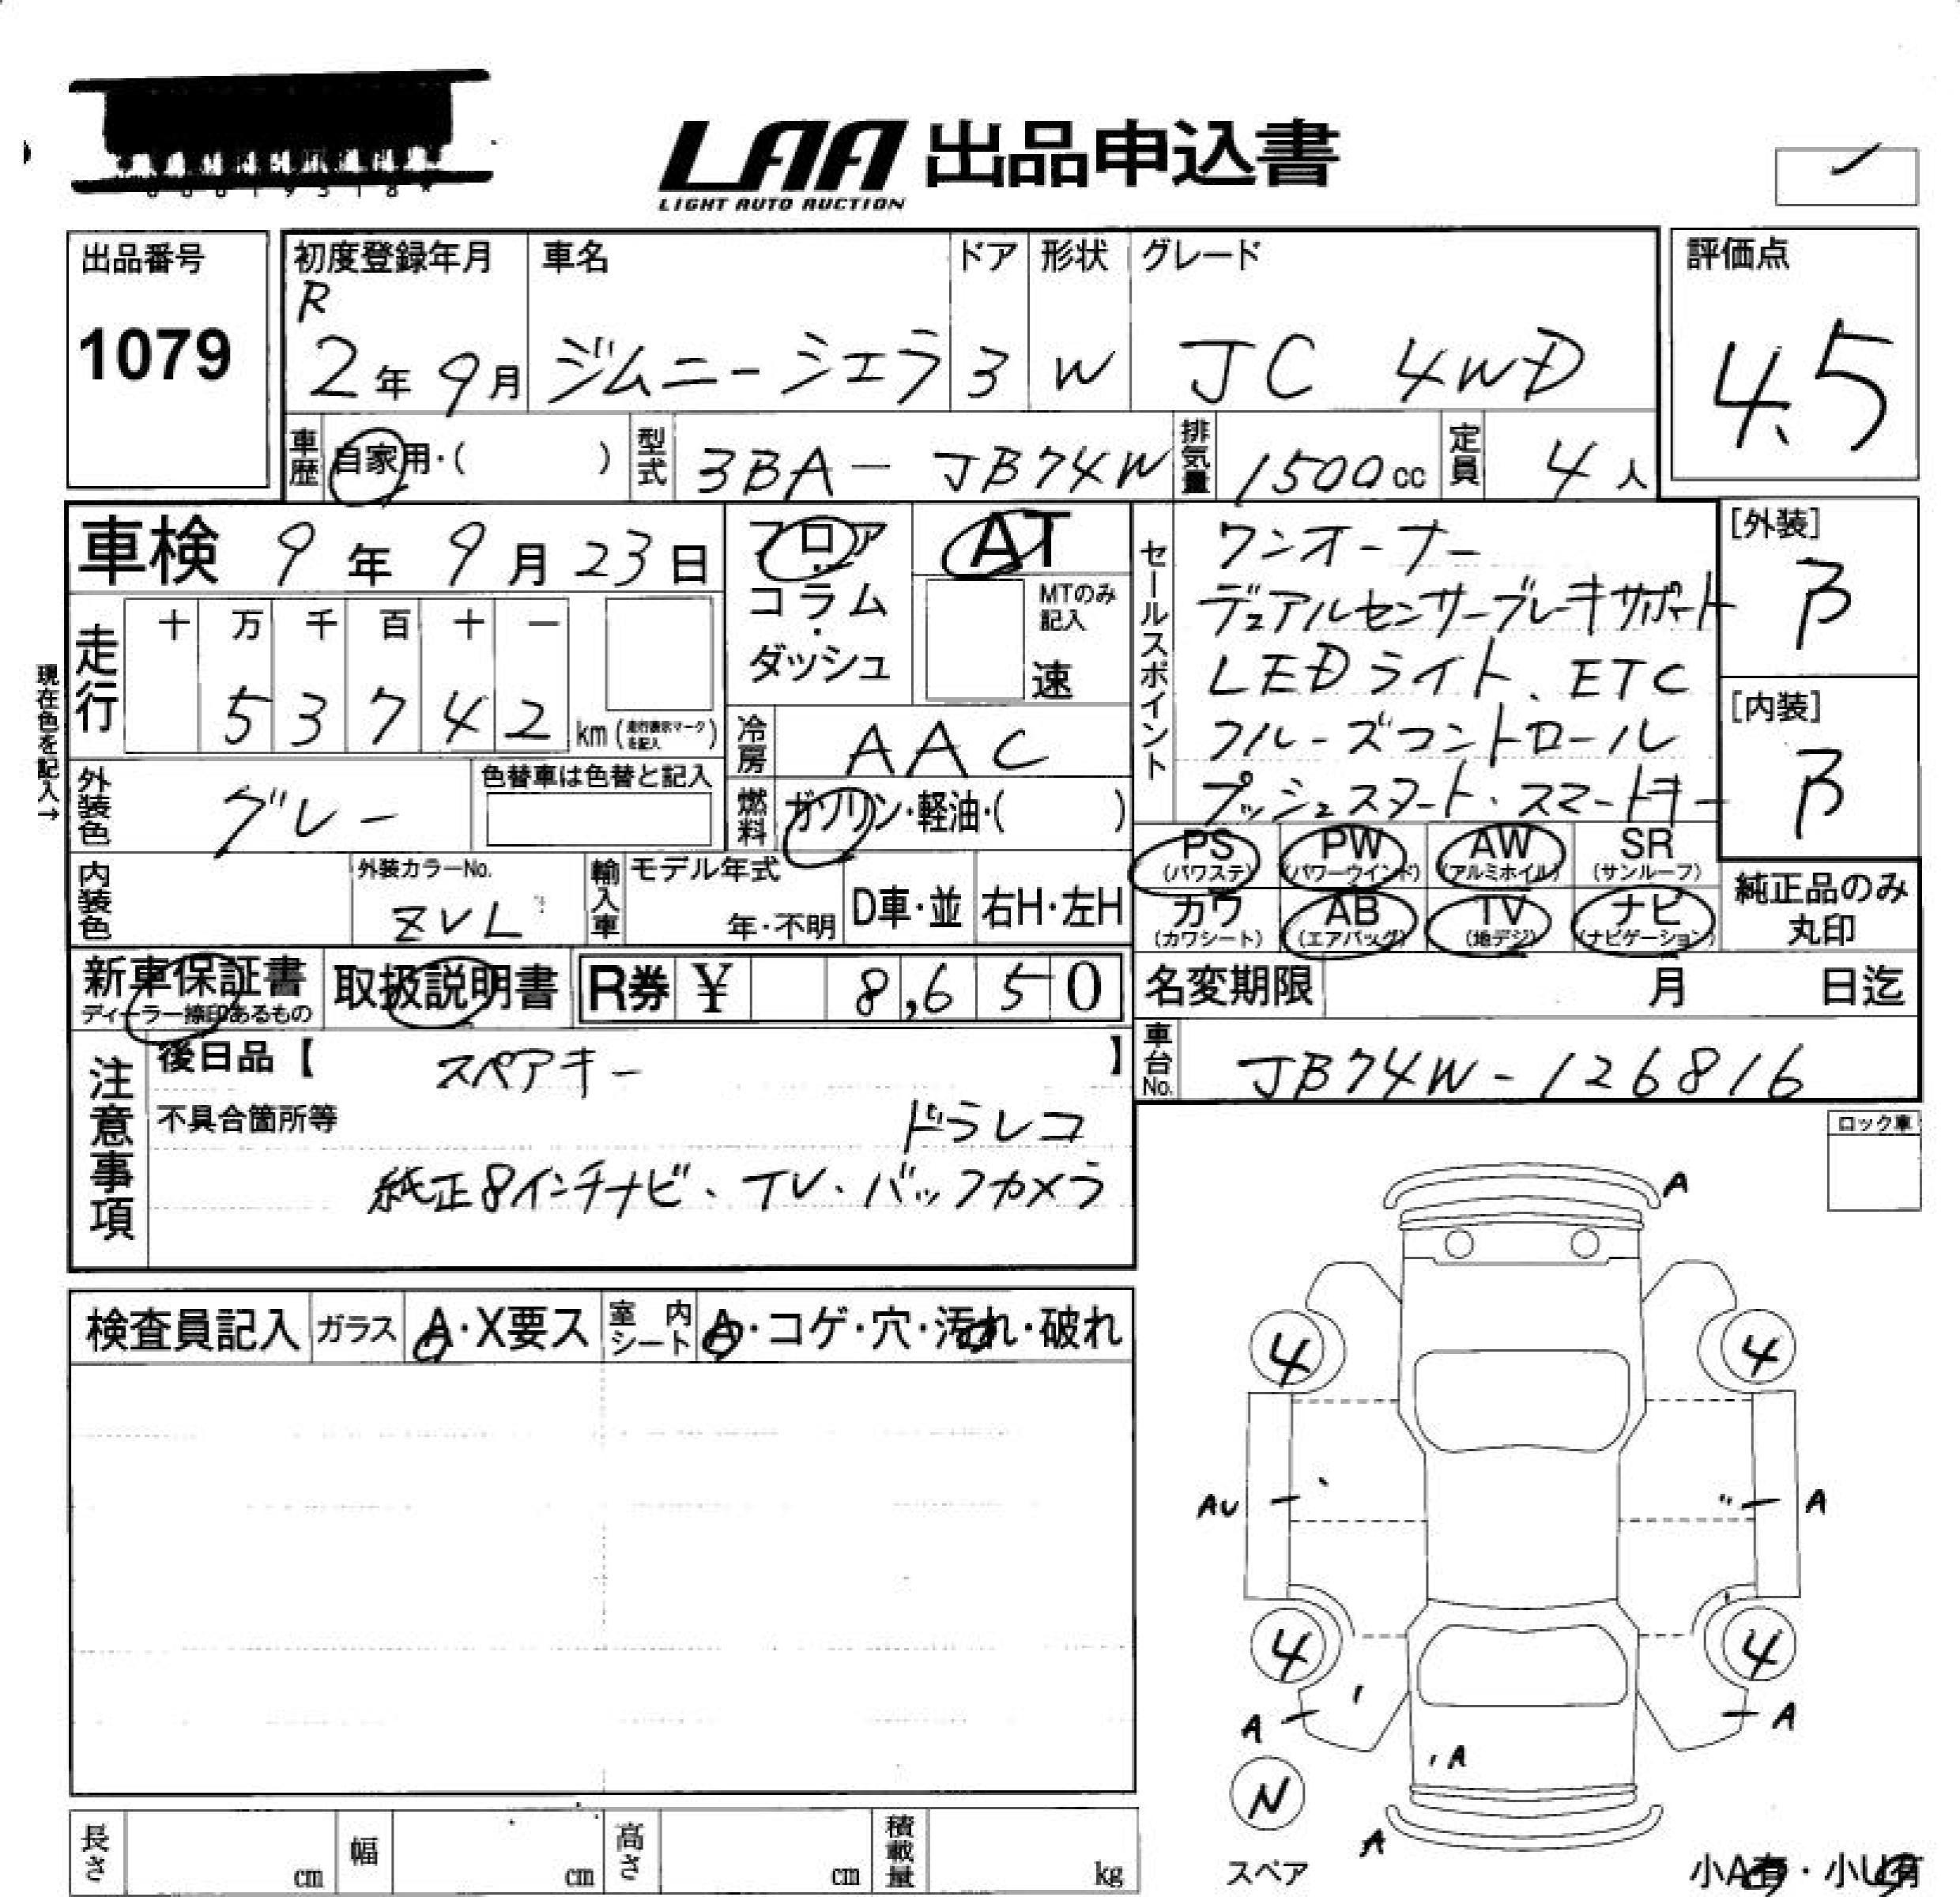 LAA 出品申込書
LIGHT AUTO AUCTION
出品番号
1079
初度登録年月 車名 ドア 形状 グレード
R
2年 9月 ジムニーシエラ 3 W JC 4WD
評価点
4.5
車歴 自家用・( ) 型式 3BA-JB74W 排気量 1500cc 定員 4人
車検 9年 9月 23日
フロア・コラム・ダッシュ
AT
MTのみ記入
速
走行 十 万 千 百 十 一
53742 km(走行表示マークを記入)
現在色を記入→
冷房 AAC
燃料 ガソリン・軽油・( )
外装色 グレー
色替車は色替と記入
内装色
外装カラーNo.
ZVL
輸入車 モデル年式
年・不明 D車・並 右H・左H
セールスポイント
ワンオーナー
デュアルセンサーブレーキサポート
LEDライト、ETC
クルーズコントロール
プッシュスタート・スマートキー
[外装]
B
[内装]
B
PS(パワステ) PW(パワーウインド) AW(アルミホイル) SR(サンルーフ)
カワ(カワシート) AB(エアバッグ) TV(地デジ) ナビ(ナビゲーション)
純正品のみ丸印
新車保証書
ディーラー捺印あるもの
取扱説明書
R券 ¥ 8,650
名変期限 月 日迄
車台No. JB74W-126816
注意事項
後日品【 スペアキー 】
不具合箇所等
ドラレコ
純正8インチナビ、TV、バックカメラ
ロック車
検査員記入 ガラス A・X要ス 室内シート A・コゲ・穴・汚れ・破れ
A
4 4
AU A
4 4
A A
A
N
A
スペア
小A有・小U有
長さ cm 幅 cm 高さ cm 積載量 kg